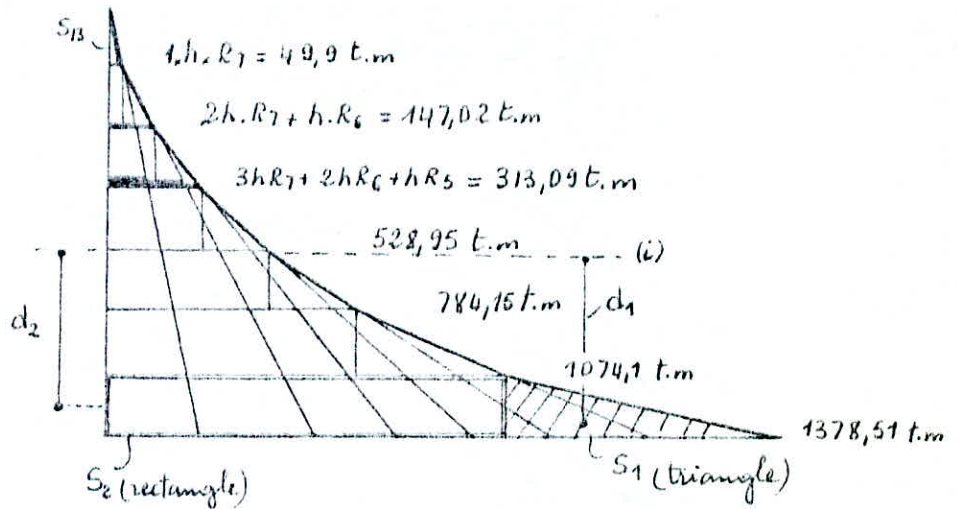 S13
1.h.R7 = 49,9 t.m
2h.R7 + h.R6 = 147,02 t.m
3hR7 + 2hR6 + hR5 = 313,09 t.m
528,95 t.m
(i)
784,15 t.m
d1
d2
1074,1 t.m
1378,51 t.m
S2 (rectangle)
S1 (triangle)